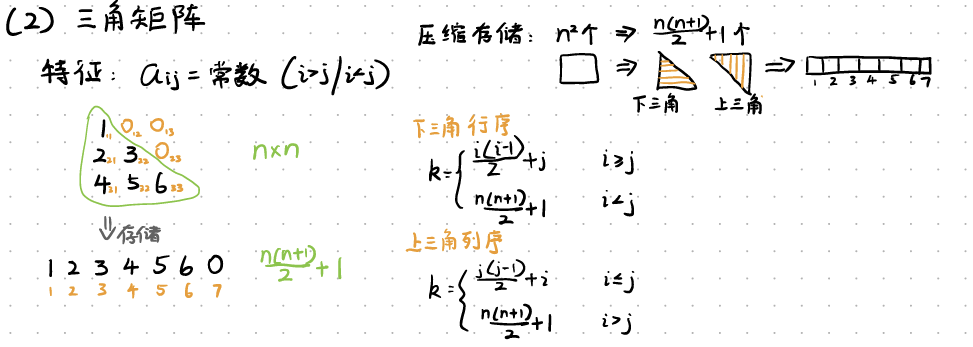 (2) 三角矩阵
特征: aij = 常数 (i>j/i<j)
1₁₁ 0₁₂ 0₁₃
2₂₁ 3₂₂ 0₂₃
4₃₁ 5₃₂ 6₃₃
n×n
⇓存储
1 2 3 4 5 6 0
1 2 3 4 5 6 7
n(n+1)/2 + 1
压缩存储: n²个 ⇒ n(n+1)/2 + 1 个
⇒ ⇒
下三角 上三角
1 2 3 4 5 6 7
下三角行序
k = { i(i-1)/2 + j i≥j
n(n+1)/2 + 1 i<j
上三角列序
k = { j(j-1)/2 + i i≤j
n(n+1)/2 + 1 i>j